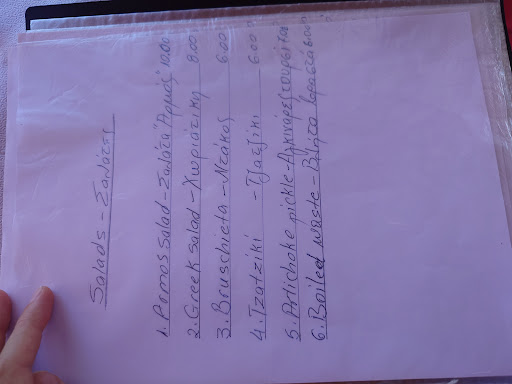 Salads - Σαλάτες
1. Pomos salad - Σαλάτα "Αρμός" 10.00
2. Greek salad - Χωριάτικη 8.00
3. Bruschieta - Ντάκος 6.00
4. Tzatziki - Τζατζίκι 6.00
5. Artichoke pickle - Αγκινάρες τουρσί
6. Boiled waste - Βλήτα βραστά 6.00